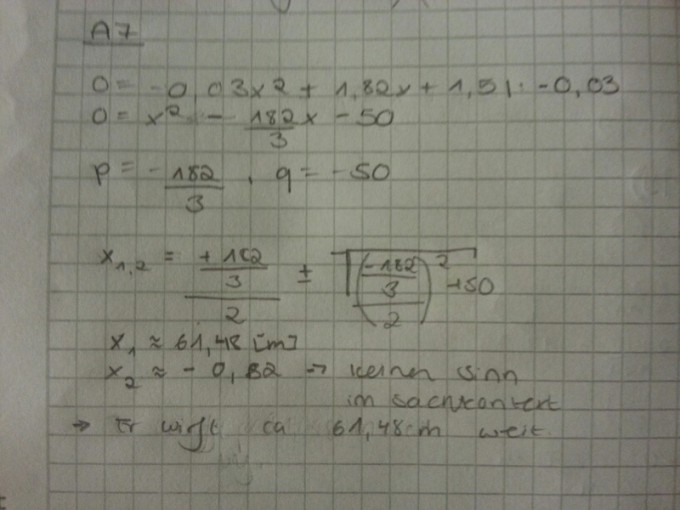 A7
0 = -0,03x² + 1,82x + 1,5 | : -0,03
0 = x² - 182/3 x - 50
p = -182/3 , q = -50
x₁,₂ = (+182/3)/2 ± √(((-182/3)/2)² + 50)
x₁ ≈ 61,48 [m]
x₂ ≈ -0,82 → keinen Sinn
im Sachkontext
→ Er wirft ca 61,48m weit.